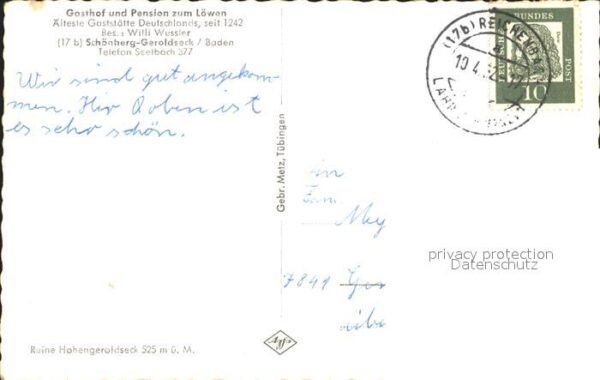 Gasthof und Pension zum Löwen
Älteste Gaststätte Deutschlands, seit 1242
Bes.: Willi Wussler
(17 b) Schönberg-Geroldseck / Baden
Telefon Seelbach 377
Wir sind gut angekom-
men. Hir oben ist
es sehr schön.
Gebr. Metz, Tübingen
(17b) REICHENBACH
19.4.
LAHR
DEUTSCHE BUNDESPOST
10
An
Fam.
May
privacy protection
Datenschutz
Ruine Hohengeroldseck 525 m ü. M.